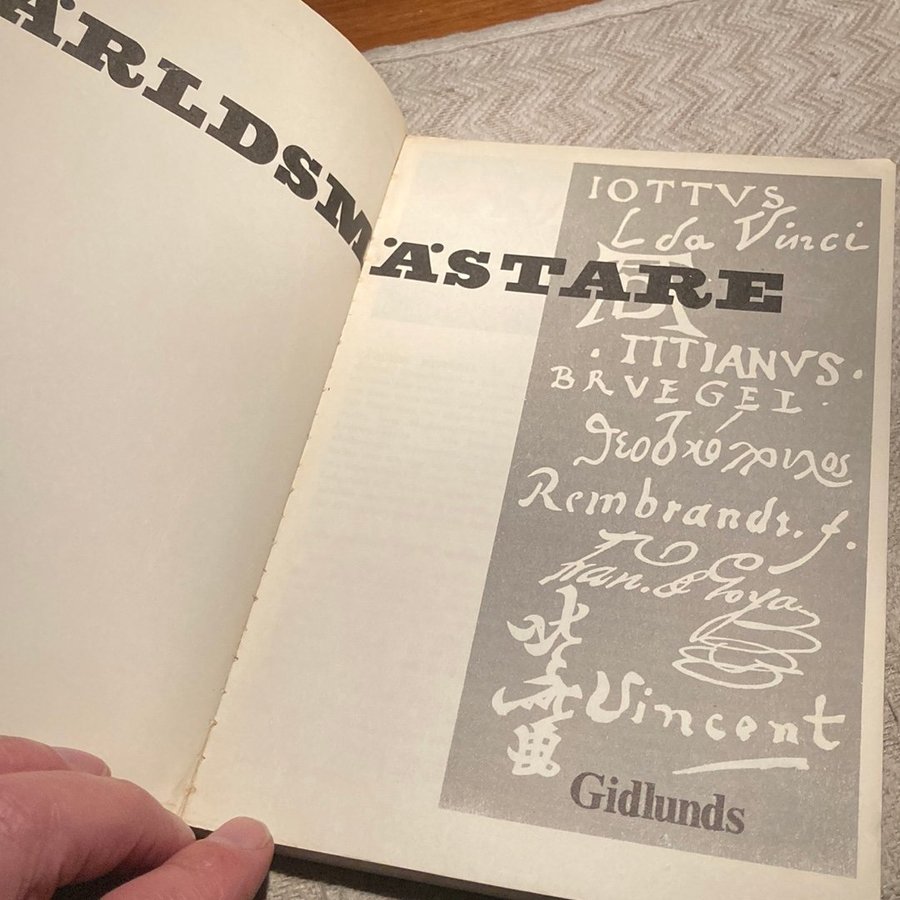 ÄRLDSMÄSTARE
IOTTVS
L da Vinci
AD
· TITIANVS ·
BRVEGEL ·
Rembrandt. f.
Fran. Goya
Vincent
Gidlunds